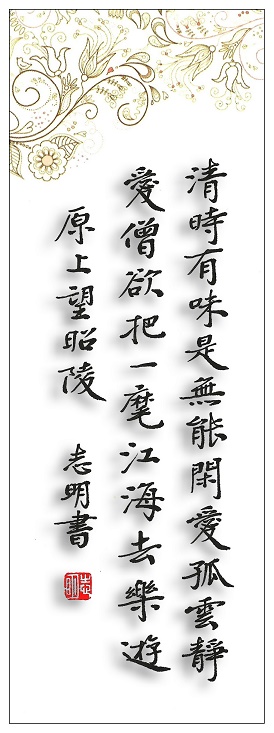 清時有味是無能閑愛孤雲靜
愛僧欲把一麾江海去樂遊
原上望昭陵 志明書
志明